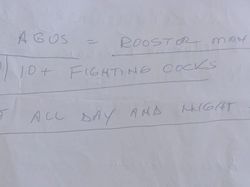 AGOS = ROOSTOR MAY
10+ FIGHTING COCKS
ALL DAY AND NIGHT